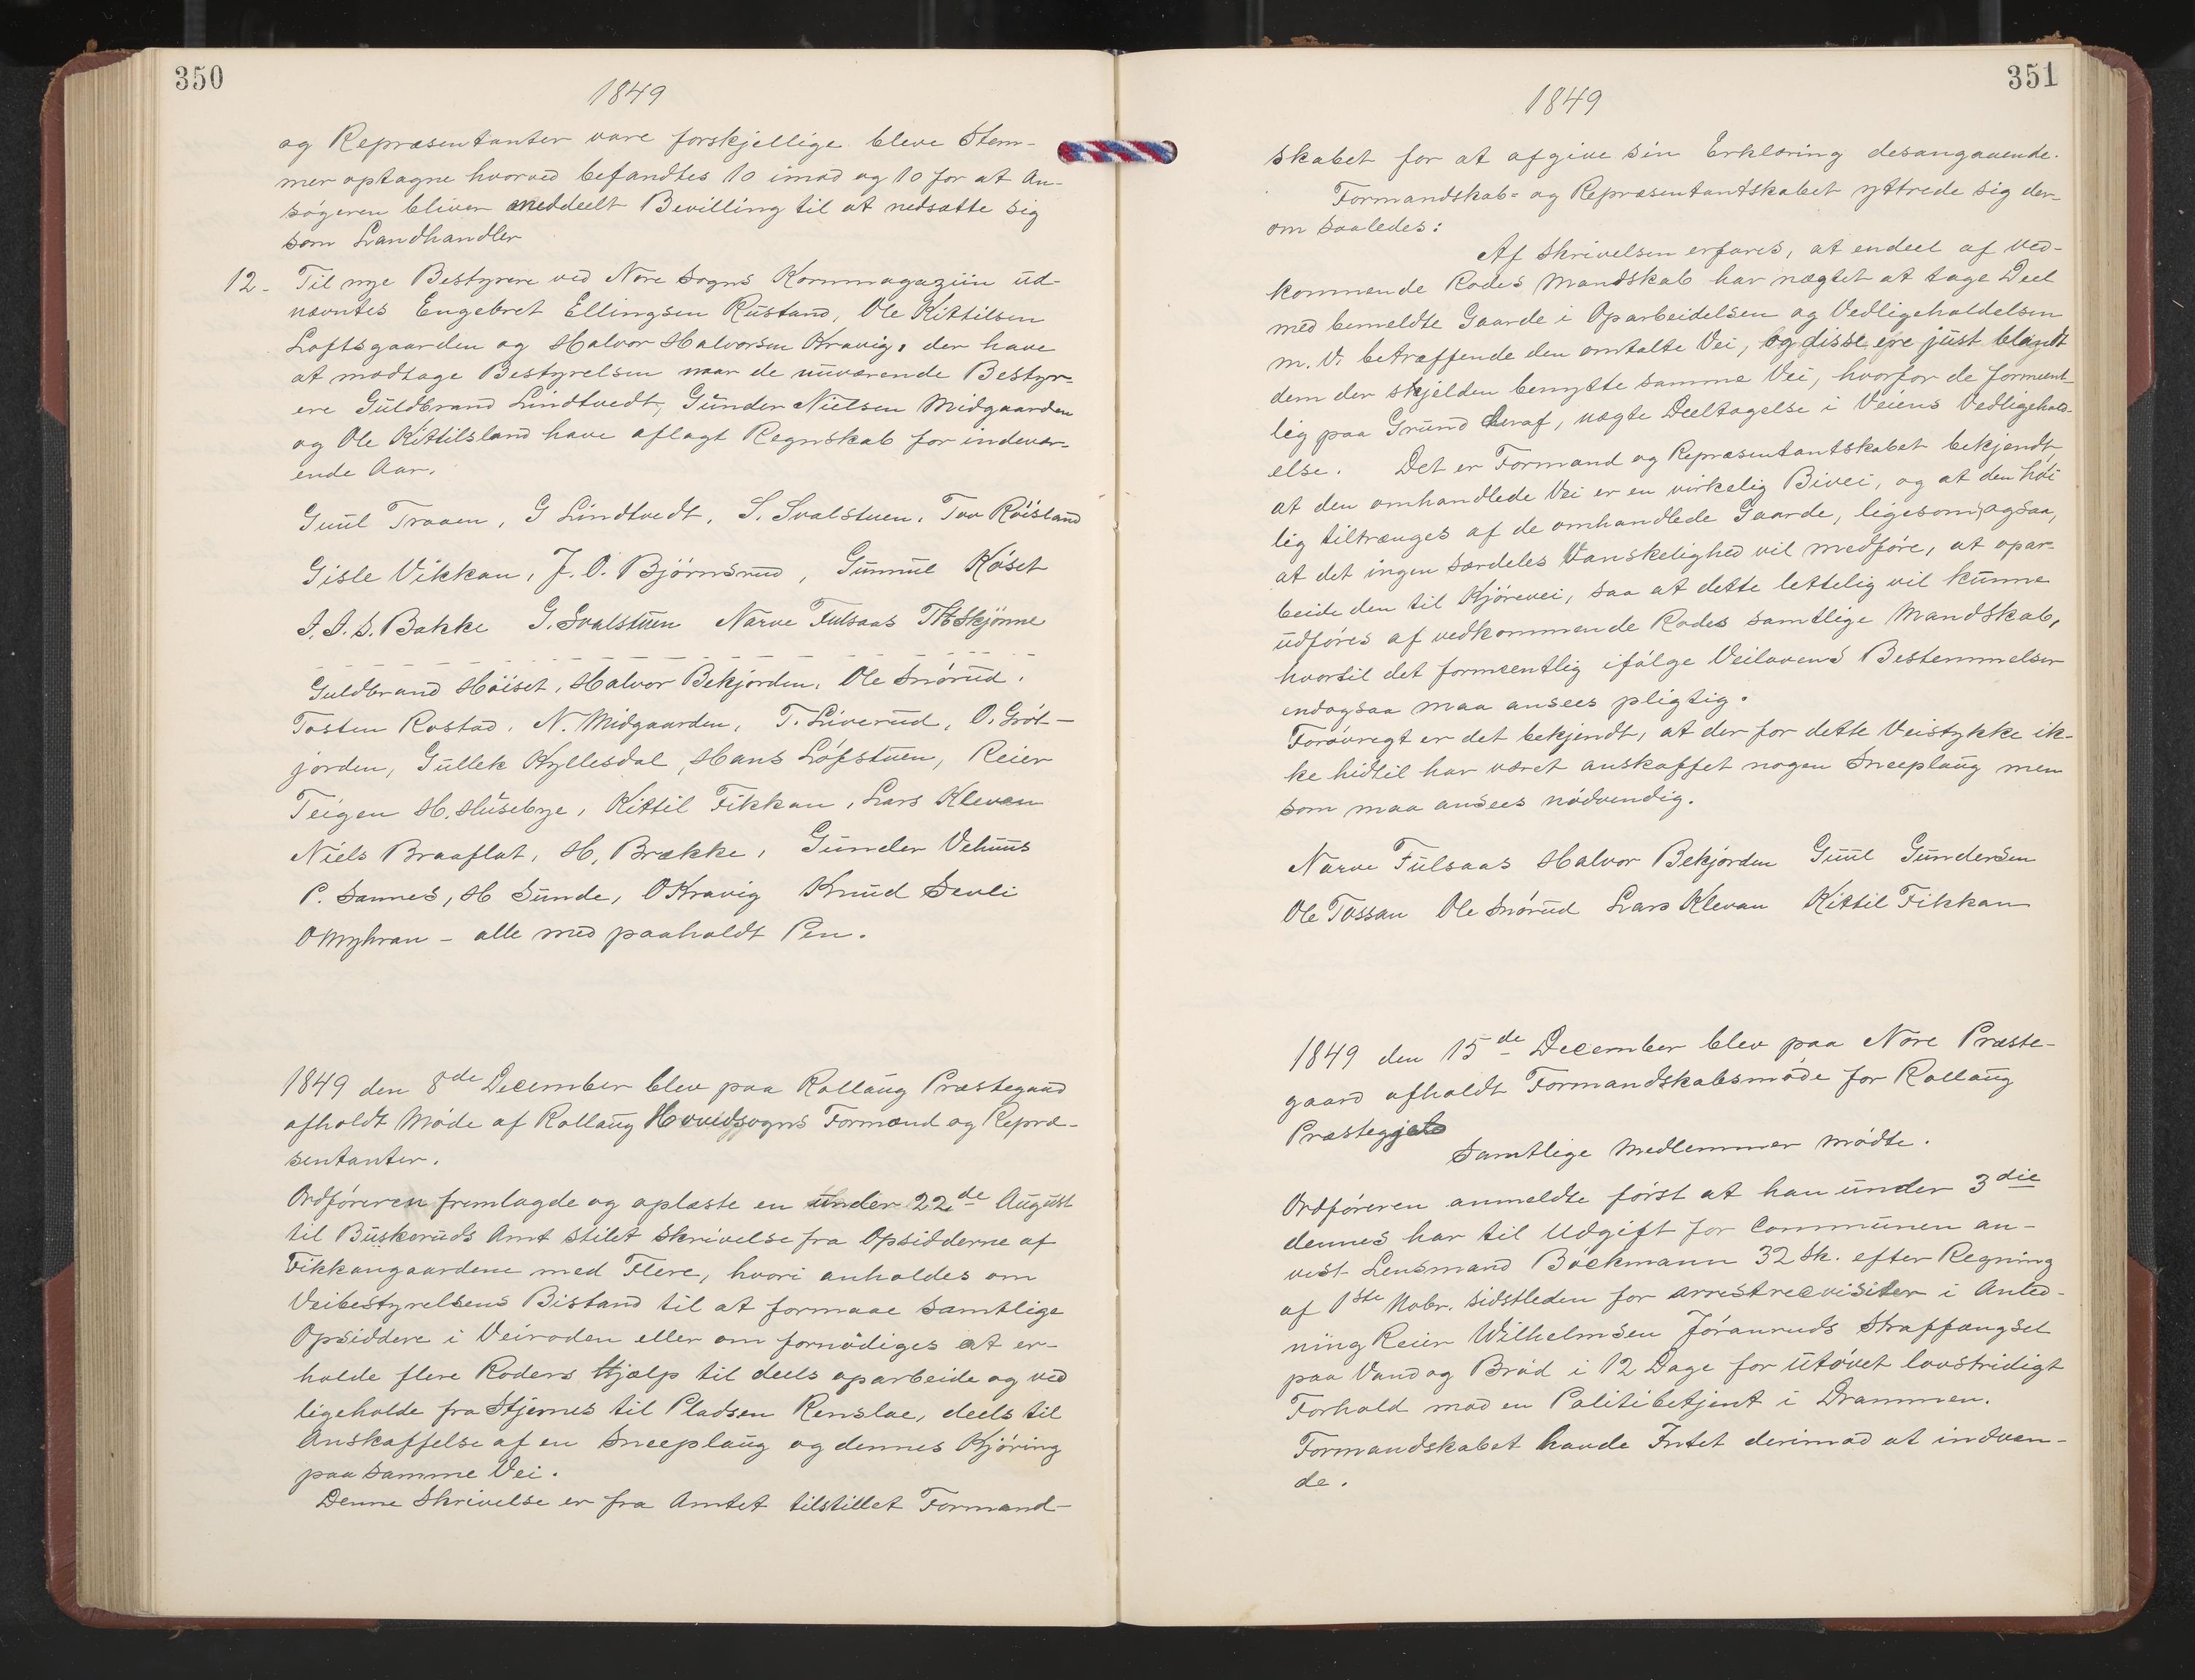 350
1849
og Repræsentanter vare forskjellige bleve Stem-
mer optagne hvorved befandtes 10 imod og 10 for at An-
søgeren bliver meddeelt Bevilling til at nedsætte sig
som Landhandler
12. Til nye Bestyrere ved Nore Sogns Kornmagaziin ud-
nævntes Engebret Ellingsen Rustand, Ole Kittilsen
Loftsgaarden og Halvor Halvorsen Kravig, der have
at modtage Bestyrelsen naar de nuværende Bestyr-
ere Guldbrand Lindtvedt, Gunder Nielsen Midgaarden
og Ole Kittilsland have aflagt Regnskab for indevær-
ende Aar.
Guul Traaen, G Lindtvedt, S. Svalstuen, Tov Røisland
Gisle Vikkan, J. O. Bjørnsrud, Gunnul Køset
A. A. S. Bakke G. Svalstuen Narve Fulsaas THSkjønne
Guldbrand Høiset, Halvor Bekjorden, Ole Snørud,
Tosten Rostad, N. Midgaarden, T. Liverud, O. Grøt-
jorden, Gullek Kyllesdal, Hans Løfstuen, Reier
Teigen H. Husebye, Kittil Fikkan, Lars Klevan
Niels Braaflat, H. Brække, Gunder Vehuus
P. Sannes, H Sunde, O Kravig Knud Sevli
O Myhran – alle med paaholdt Pen.
1849 den 8de December blev paa Rollaug Præstegaad
afholdt Møde af Rollaug Hovidsogns Formænd og Repræ-
sentanter.
Ordføreren fremlagde og oplæste en under 22de August
til Buskeruds Amt stilet Skrivelse fra Opsidderne af
Fikkangaardene med Flere, hvori anholdes om
Veibestyrelsens Bistand til at formaae samtlige
Opsiddere i Veiroden eller om fornødiges at er-
holde flere Roders Hjælp til deels oparbeide og ved
ligeholde fra Stjernes til Pladsen Renslae, deels til
Anskaffelse af en Sneeplaug og dennes Kjøring
paa samme Vei.
Denne Skrivelse er fra Amtet tilstillet Formand-
351
1849
skabet for at afgive sin Erklæring desangaaende.
Formandskab= og Repræsentantskabet yttrede sig der-
om saaledes:
Af Skrivelsen erfares, at endeel af ved-
kommende Rodes Mandskab har nægtet at tage Deel
med bemeldte Gaarde i Oparbeidelsen og Vedligeholdelsen
m. V. betræffende den omtalte Vei, og disse ere just blandt
dem der skjelden benytte samme Vei, hvorfor de forment-
lig paa Grund deraf, nægte Deeltagelse i Veiens Vedligehold-
else. Det er Formand og Repræsentantskabet bekjendt,
at den omhandlede Vei er en virkelig Bivei, og at den høi
lig tiltrænges af de omhandlede Gaarde, ligesom ogsaa,
at det ingen særdeles Vanskelighed vil medføre, at opar-
beide den til Kjørevei, saa at dette lettelig vil kunne
udføres af vedkommende Rodes samtlige Mandskab,
hvortil det formeentlig ifølge Veilovens Bestemmelser
endogsaa maa ansees pligtig.
Forøvregt er det bekjendt, at der for dette Veistykke ik-
ke hidtil har været anskaffet nogen Sneeplaug men
som maa ansees nødvendig.
Narve Fulsaas Halvor Bekjorden Guul Gundersen
Ole Tossan Ole Snørud Lars Klevan Kittil Fikkan
1849 den 15de December blev paa Nore Præste-
gaard afholdt Formandskabsmøde for Rollaug
Præstegjeld
Samtlige Medlemmer mødte.
Ordføreren anmeldte først at han under 3die
dennes har til Udgift for Communen an-
vist Lensmand Böckmann 32 Sk. efter Regning
af 1ste Nobr. sidstleden for arrestrecvisiter i Anled-
ning Reier Wilhelmsen Jøranruds Straffængsel
paa Vand og Brød i 12 Dage for utøvet lovstridigt
Forhold mod en Politibetjent i Drammen.
Formandskabet havde Intet derimod at indven-
de.